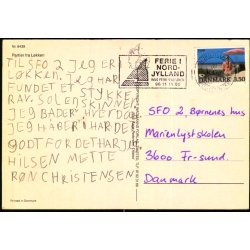 Nr. 8439
Partier fra Løkken
TIL SFO 2 JEG ER I
LØKKEN. JEG HAR
FUNDET ET STYKKE
RAV. SOLEN SKINNER
JEG BADER HVERDAG
JEG HÅBER I HAR DET
GODT FOR DET HAR JEG
HILSEN METTE
RØN CHRISTENSEN
FERIE I
NORD-
JYLLAND
DANMARK 3.50
SFO 2, Børnenes hus
Marienlystskolen
3600 Fr-sund.
Danmark
Printed in Denmark